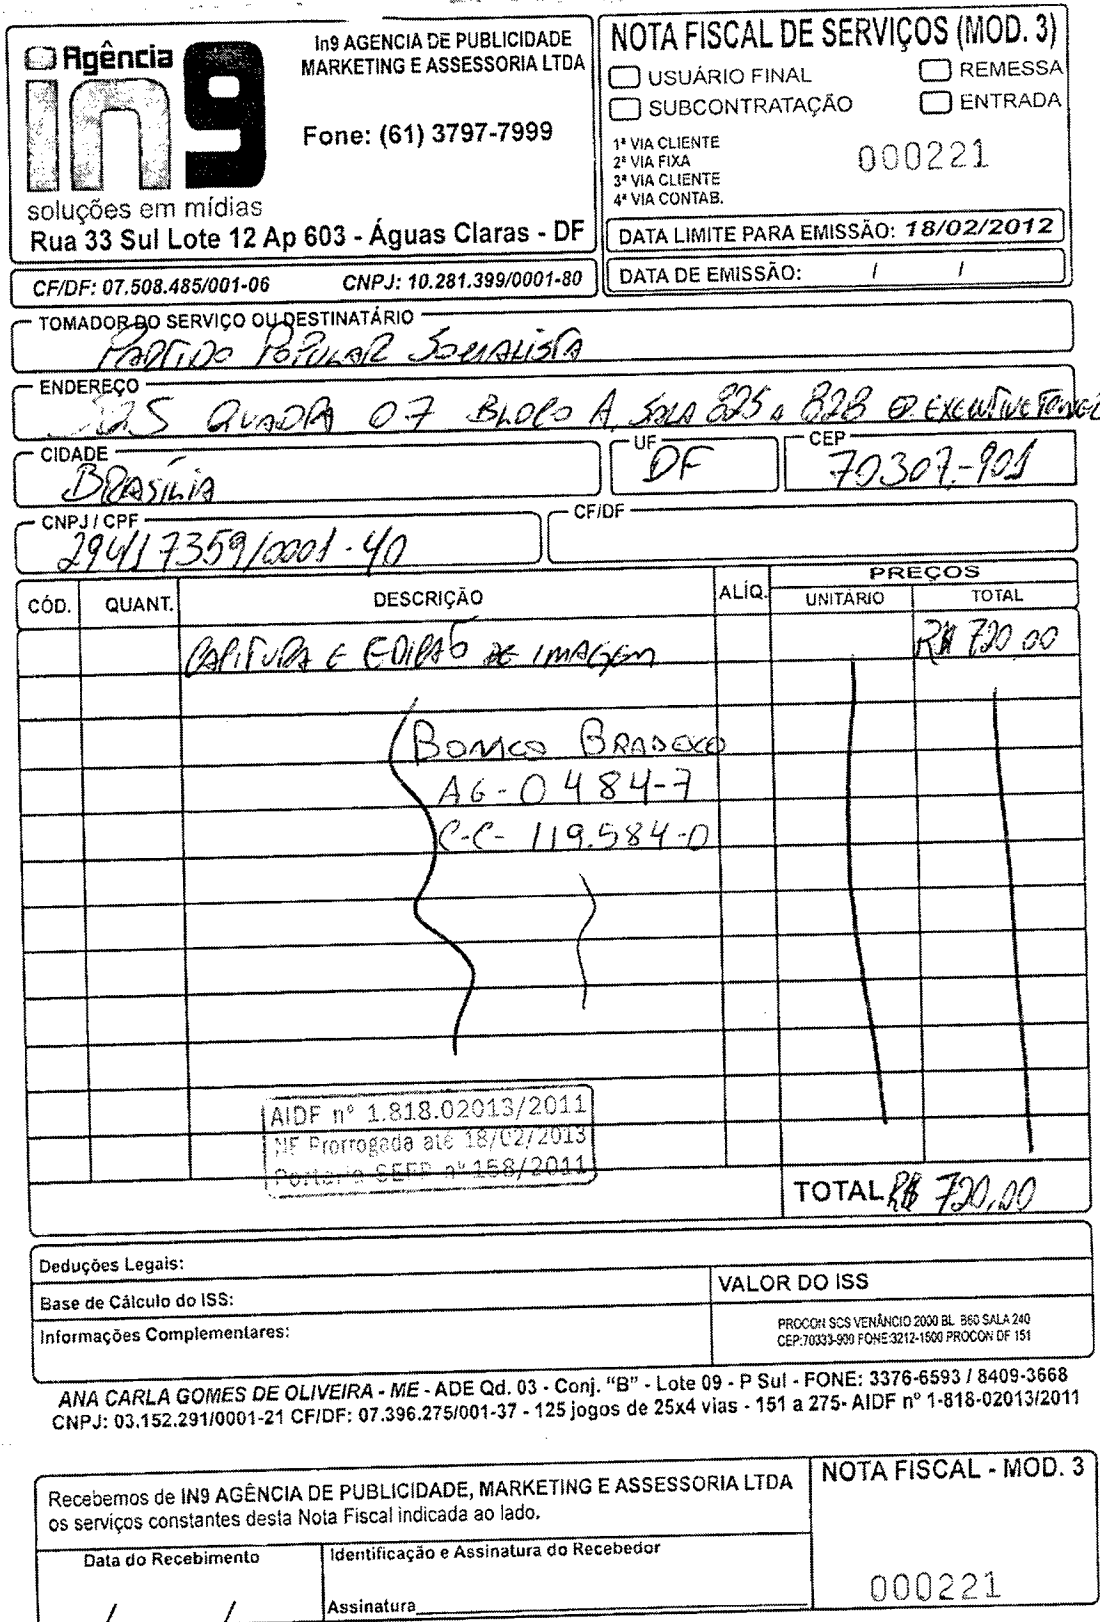 Agência
in9
soluções em mídias
In9 AGENCIA DE PUBLICIDADE
MARKETING E ASSESSORIA LTDA
Fone: (61) 3797-7999
Rua 33 Sul Lote 12 Ap 603 - Águas Claras - DF
CF/DF: 07.508.485/001-06 CNPJ: 10.281.399/0001-80
NOTA FISCAL DE SERVIÇOS (MOD. 3)
USUÁRIO FINAL REMESSA
SUBCONTRATAÇÃO ENTRADA
1ª VIA CLIENTE
2ª VIA FIXA
3ª VIA CLIENTE
4ª VIA CONTAB.
000221
DATA LIMITE PARA EMISSÃO: 18/02/2012
DATA DE EMISSÃO: / /
TOMADOR DO SERVIÇO OU DESTINATÁRIO
PARTIDO POPULAR SOCIALISTA
ENDEREÇO
QUADRA 07 BLOCO A, SALA 825 a 828 EXECUTIVE TOWER
CIDADE UF CEP
BRASÍLIA DF 70307-901
CNPJ / CPF CF/DF
29417359/0001-40
CÓD. QUANT. DESCRIÇÃO ALÍQ. PREÇOS
UNITÁRIO TOTAL
CAPITURA E EDIÇÃO DE IMAGEM R$ 720,00
BRADEXCO
AG-0484-7
C-C- 119.584-0
AIDF nº 1.818.02013/2011
NF Prorrogada até 18/02/2013
Portaria SEFP nº 158/2011
TOTAL R$ 720,00
Deduções Legais:
Base de Cálculo do ISS:
VALOR DO ISS
Informações Complementares:
PROCON SCS VENÂNCIO 2000 BL B60 SALA 240
CEP:70333-900 FONE:3212-1500 PROCON DF 151
ANA CARLA GOMES DE OLIVEIRA - ME - ADE Qd. 03 - Conj. “B” - Lote 09 - P Sul - FONE: 3376-6593 / 8409-3668
CNPJ: 03.152.291/0001-21 CF/DF: 07.396.275/001-37 - 125 jogos de 25x4 vias - 151 a 275- AIDF nº 1-818-02013/2011
Recebemos de IN9 AGÊNCIA DE PUBLICIDADE, MARKETING E ASSESSORIA LTDA
os serviços constantes desta Nota Fiscal indicada ao lado.
NOTA FISCAL - MOD. 3
Data do Recebimento
Identificação e Assinatura do Recebedor
/ /
Assinatura
000221